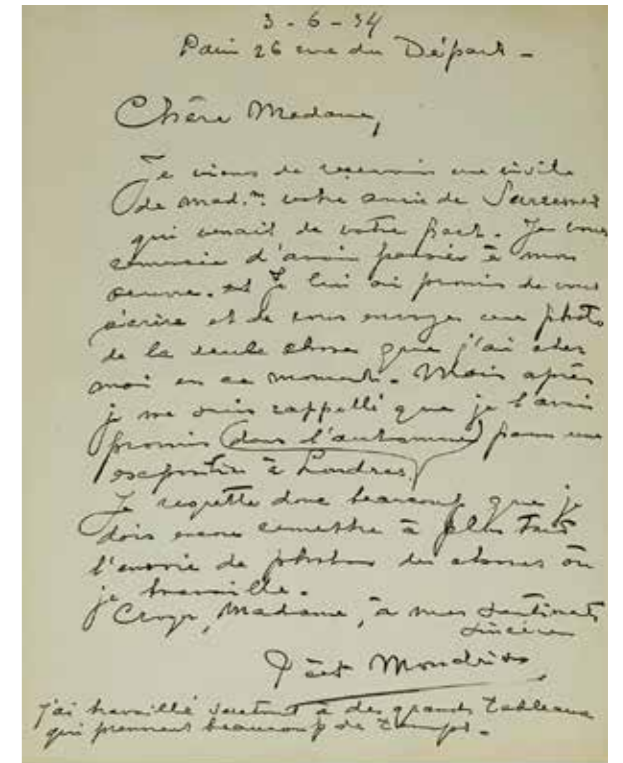 3 - 6 - 34
Paris 26 rue du Départ -
Chère Madame,
Je viens de recevoir une visite
de mad.m votre amie de
qui venait de votre part. Je vous
remercie d'avoir penser à mon
oeuvre. et Je lui ai promis de vous
écrire et de vous envoyer une photo
de la seule chose que j'ai chez
moi en ce moment. Mais après
je me suis rappellé que je l'avais
promis (dans l'automne) pour une
exposition à Londres
Je regrette donc beaucoup que je
dois encore remettre à plus tard
l'envoie de photos des choses où
je travaille.
Croyez, Madame, à mes sentiments
sincères
Piet Mondrian
j'ai travaillé surtout à des grands tableaux
qui prennent beaucoup de temps.